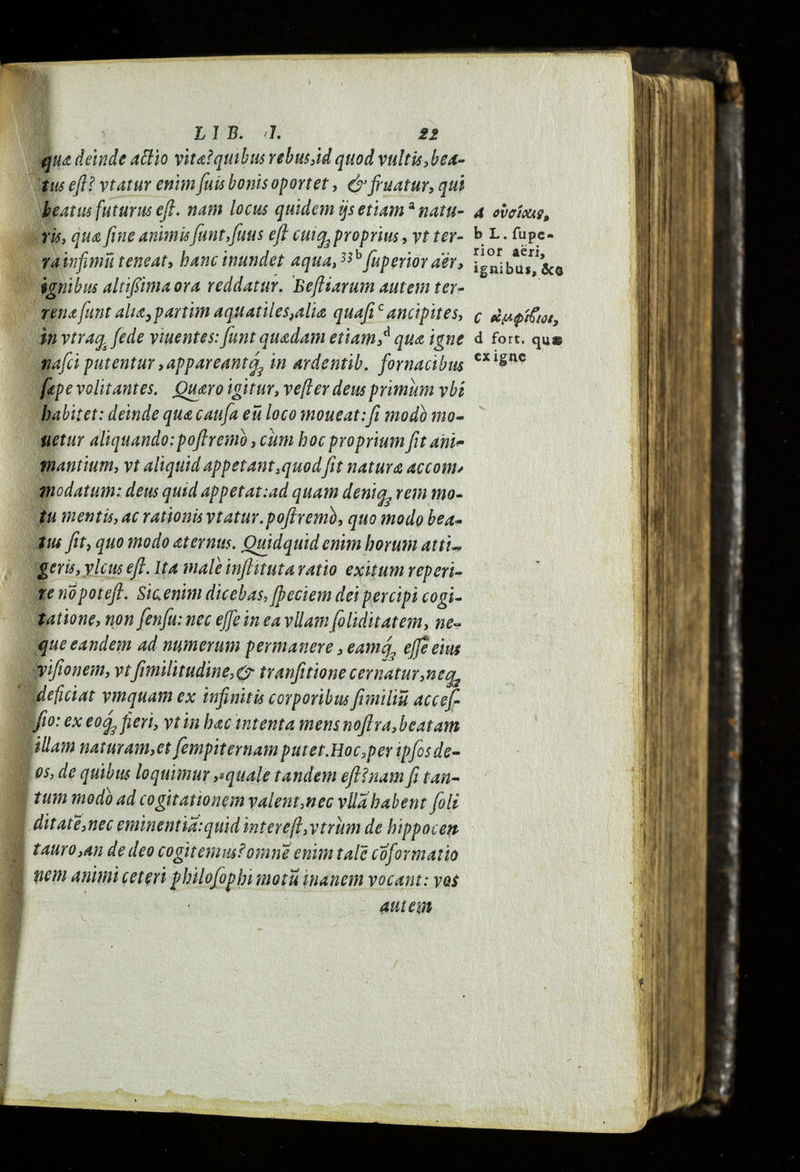 LIB. I. 22
quæ deinde actio vitæ? quibus rebus, id quod vultis, bea-
tus est? vtatur enim suis bonis oportet, & fruatur, qui
beatus futurus est. nam locus quidem ijs etiam ª natu-
ris, quæ sine animis sunt, suus est cuiq; proprius, vt ter-
ra infimū teneat, hanc inundet aqua, 33 ᵇ superior aër,
ignibus altissima ora reddatur. Bestiarum autem ter-
renæ sunt aliæ, partim aquatiles, aliæ quasi ᶜ ancipites,
in vtraq; sede viuentes: sunt quædam etiam, ᵈ quæ igne
nasci putentur, appareantq; in ardentib. fornacibus
sæpe volitantes. Quæro igitur, vester deus primùm vbi
habitet: deinde quæ causa eū loco moueat: si modò mo-
uetur aliquando: postremò, cùm hoc proprium sit ani-
mantium, vt aliquid appetant, quod sit naturæ accom-
modatum: deus quid appetat: ad quam deniq; rem mo-
tu mentis, ac rationis vtatur. postremò, quo modo bea-
tus sit, quo modo æternus. Quidquid enim horum atti-
geris, vlcus est. Ita malè instituta ratio exitum reperi-
re nō potest. Sic enim dicebas, speciem dei percipi cogi-
tatione, non sensu: nec esse in ea vllam soliditatem, ne-
que eandem ad numerum permanere, eamq; esse eius
visionem, vt similitudine, & transitione cernatur, neq;
deficiat vmquam ex infinitis corporibus similiū acces-
sio: ex eoq; fieri, vt in hæc intenta mens nostra, beatam
illam naturam, et sempiternam putet. Hoc, per ipsos de-
os, de quibus loquimur, quale tandem est? nam si tan-
tum modò ad cogitationem valent, nec vllā habent soli
ditatē, nec eminentiā: quid interest, vtrùm de hippocen
tauro, an de deo cogitemus? omnē enim talē cōformatio
nem animi ceteri philosophi motū inanem vocant: vos
autem
a οὐσίαις,
b L. supe-
rior aëri,
ignibus, &c
c ἀμφίβιοι,
d fort. quæ
ex igne